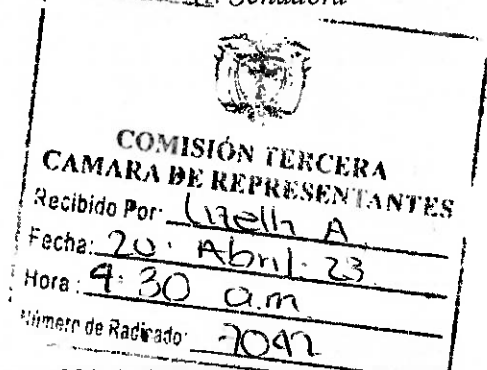 Senadora
COMISIÓN TERCERA
CAMARA DE REPRESENTANTES
Recibido Por: Lizeth A
Fecha: 20. Abril. 23
Hora: 9:30 a.m
Número de Radicado: